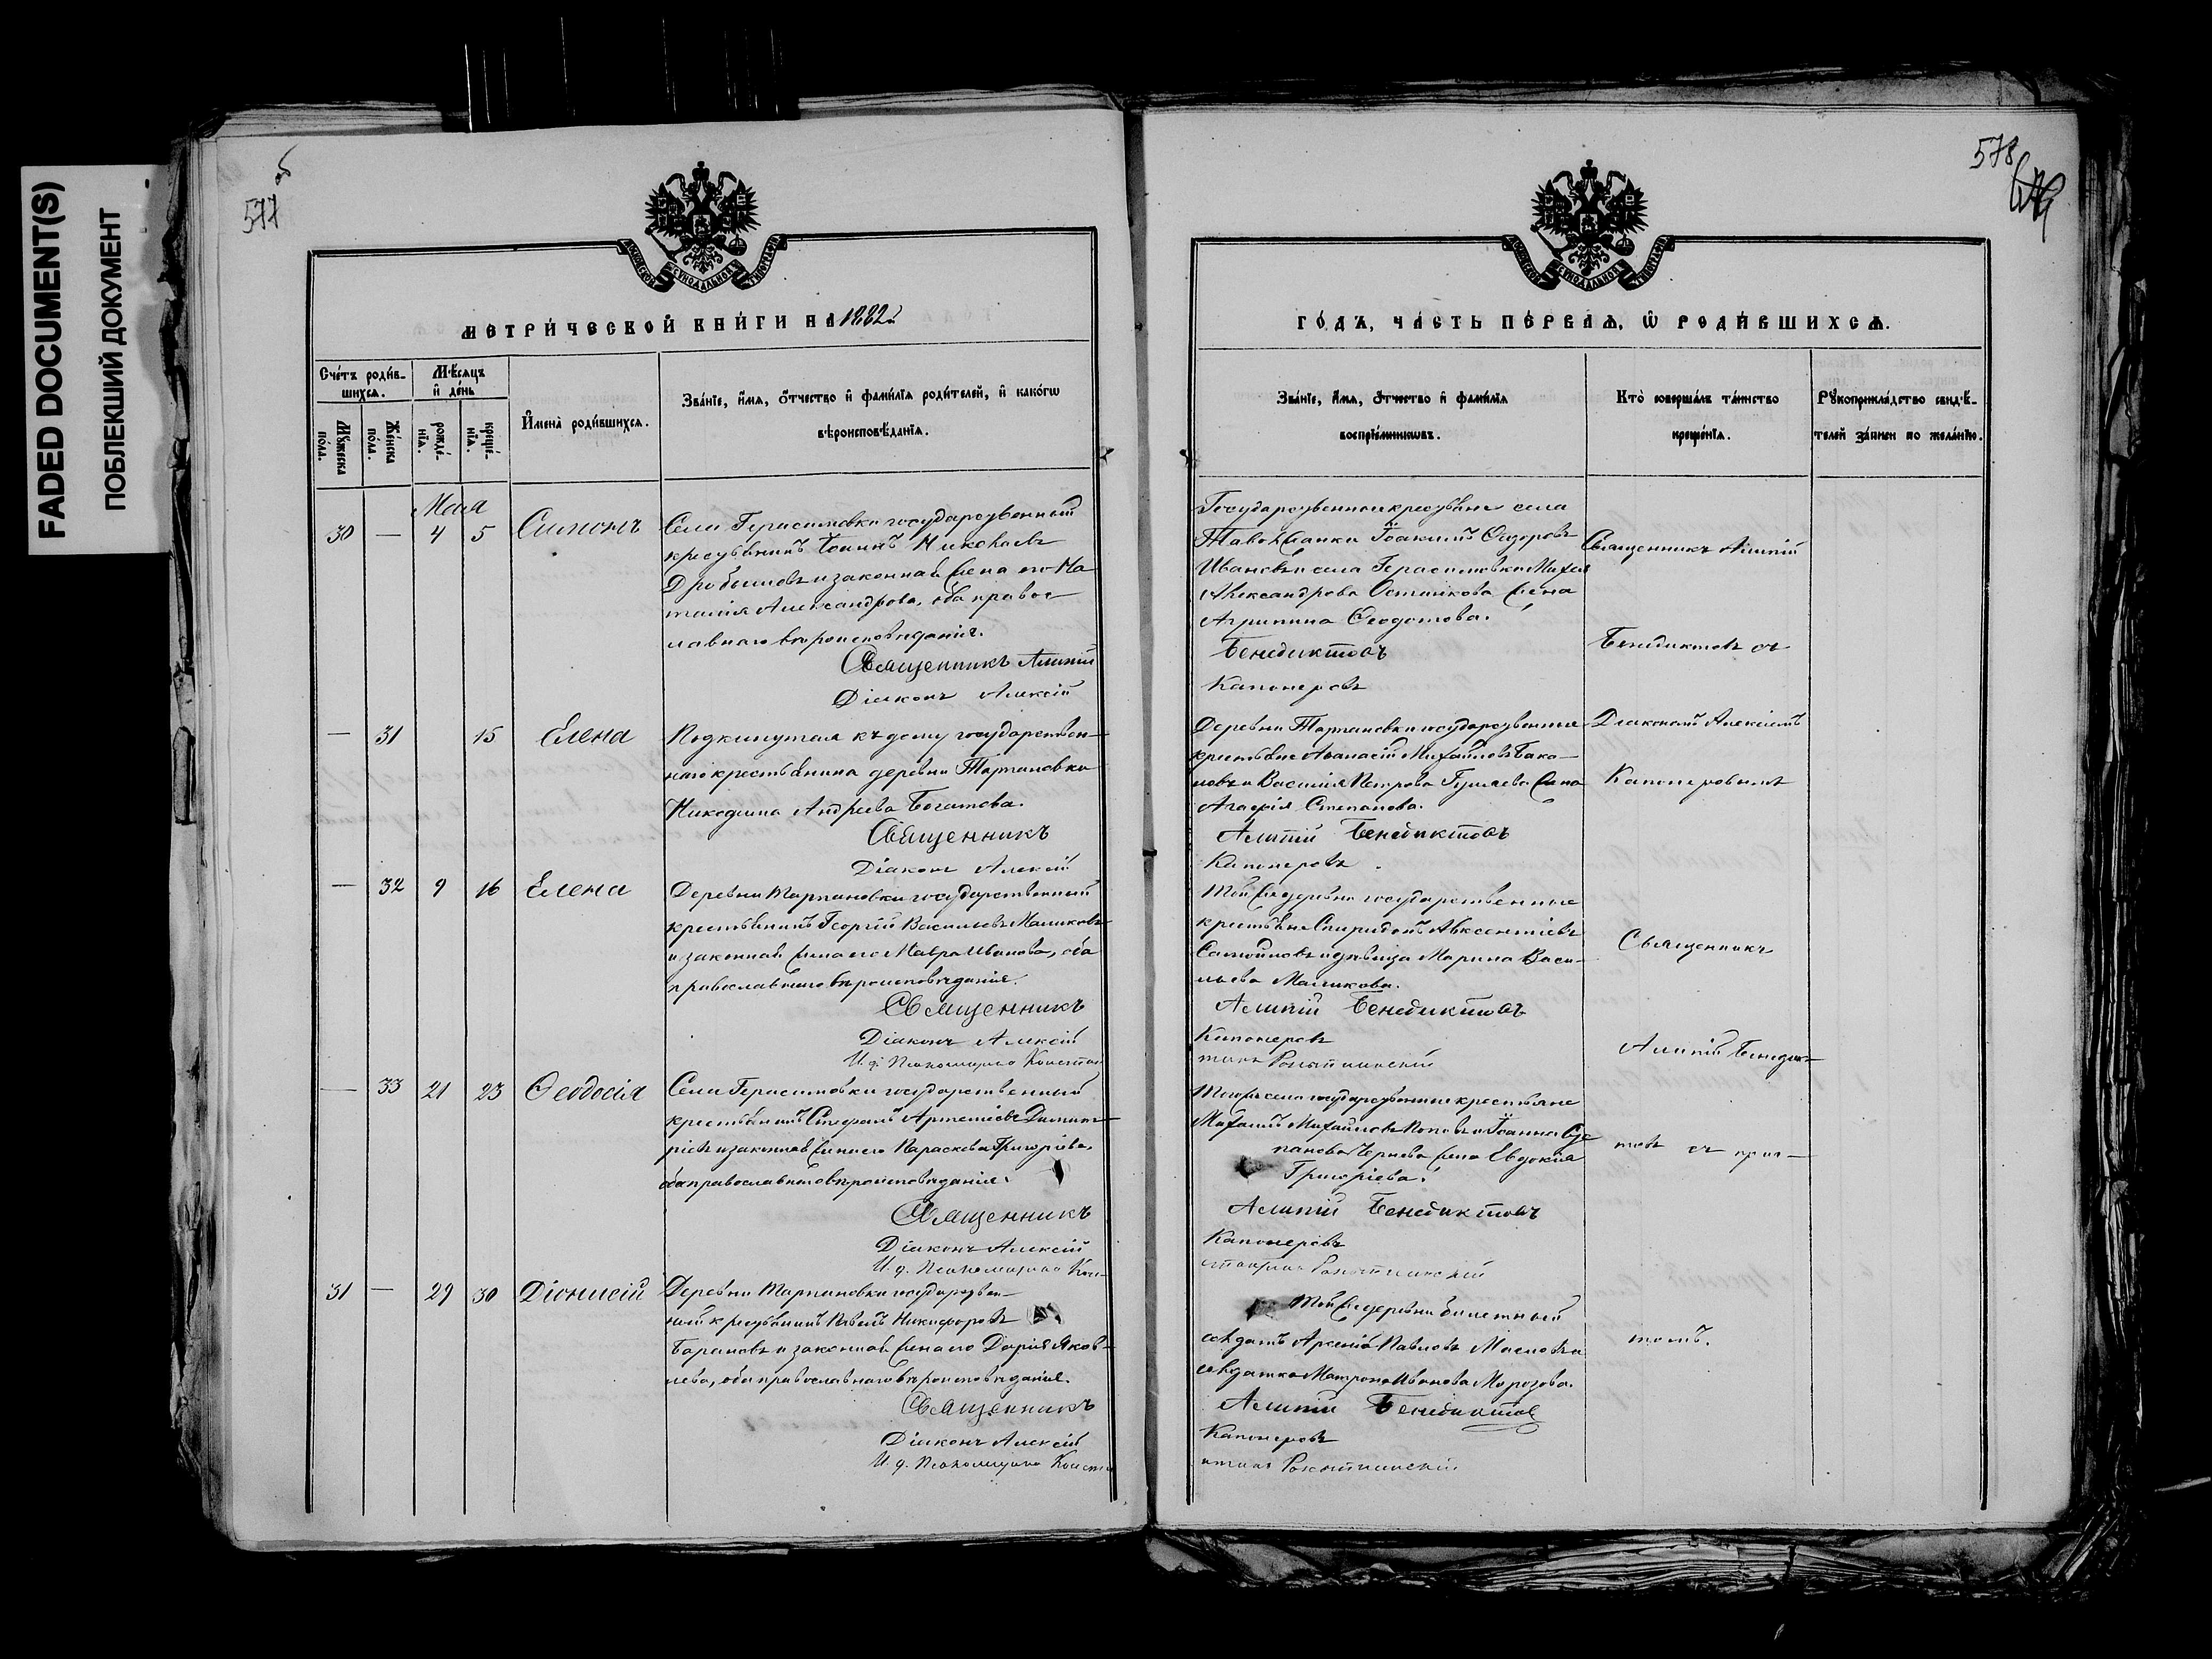 FADED DOCUMENT(S)
ПОБЛЕКШИЙ ДОКУМЕНТ
577 об
МЕТРИЧЕСКОЙ КНИГИ НА 1882й
Счетъ родившихся.
Мѣсяцъ и день
Мужеска пола.
Женска пола.
рожденія.
крещенія.
Имена родившихся.
Званіе, имя, отчество и фамилія родителей, и какогѡ
вѣроисповѣданія.
Мая
30 — 4 5 Симонъ
Села Герасимовки государственный
крестьянинъ Іоаннъ Николаевъ
Дробышевъ и законная жена его На
талія Александрова, оба правос
лавнаго вѣроисповѣданія.
Священникъ Алипій
Діаконъ Алексій
— 31 15 Елена
Подкинутая къ дому государствен-
наго крестьянина деревни Тарпановки
Никодима Андреева Богатова.
Священникъ
Діаконъ Алексій
— 32 9 16 Елена
Деревни Тарпановки государственный
крестьянинъ Георгій Васильевъ Маликовъ
и законная жена его Мавра Иванова, оба
православнаго вѣроисповѣданія.
Священникъ
Діаконъ Алексій
И. д. Псаломщика Констан
— 33 21 23 Ѳеодосія
Села Герасимовки государственный
крестьянинъ Стефанъ Артеміевъ Димит-
ріевъ и законная жена его Параскева Григоріева,
оба православнаго вѣроисповѣданія.
Священникъ
Діаконъ Алексій
И. д. Псаломщика Кон-
31 — 29 30 Діонисій
Деревни Тарпановки государствен-
ный крестьянинъ Павелъ Никифоровъ
Барановъ и законная жена его Дарія Яков-
лева, оба православнаго вѣроисповѣданія.
Священникъ
Діаконъ Алексій
И. д. Псаломщика Конста
578
ГОДЪ, ЧАСТЬ ПЕРВАЯ, Ѡ РОДИВШИХСЯ.
Званіе, имя, отчество и фамилія
воспріемниковъ.
Кто совершалъ таинство
крещенія.
Рукоприкладство свидѣ-
телей записи по желанію.
Государственные крестьяне села
Іоакимъ Сидоровъ
Ивановъ и села Герасимовки Михея
Александрова жена
Агрипина Ѳеодотова.
Бенедиктовъ
Капонеровъ
Деревни Тарпановки государственные
крестьяне Аѳанасій Михайловъ Бако-
новъ и Василія Петрова Гуляева жена
Агаѳія Степанова.
Алипій Бенедиктовъ
Капонеровъ
Той же деревни государственные
крестьяне Спиридонъ Авксентіевъ
Самойловъ и дѣвица Марина Васи-
льева Маликова.
Алипій Бенедиктовъ
Капонеровъ
тинъ
Того же села государственные крестьяне
Михаилъ Михайловъ Поповъ и Іоанна Сте
панова Чернева жена Евдокія
Григоріева.
Алипій Бенедиктовъ
Капонеровъ
Той же деревни билетный
солдатъ Арсеній Павловъ Масловъ и
солдатка Матрона Иванова Морозова.
Алипій Бенедиктовъ
Капонеровъ
Священникъ Алипій
Бенедиктовъ съ
Діакономъ Алексіемъ
Капонеровымъ
Священникъ
Алипій Бенедик-
товъ съ прич-
томъ.